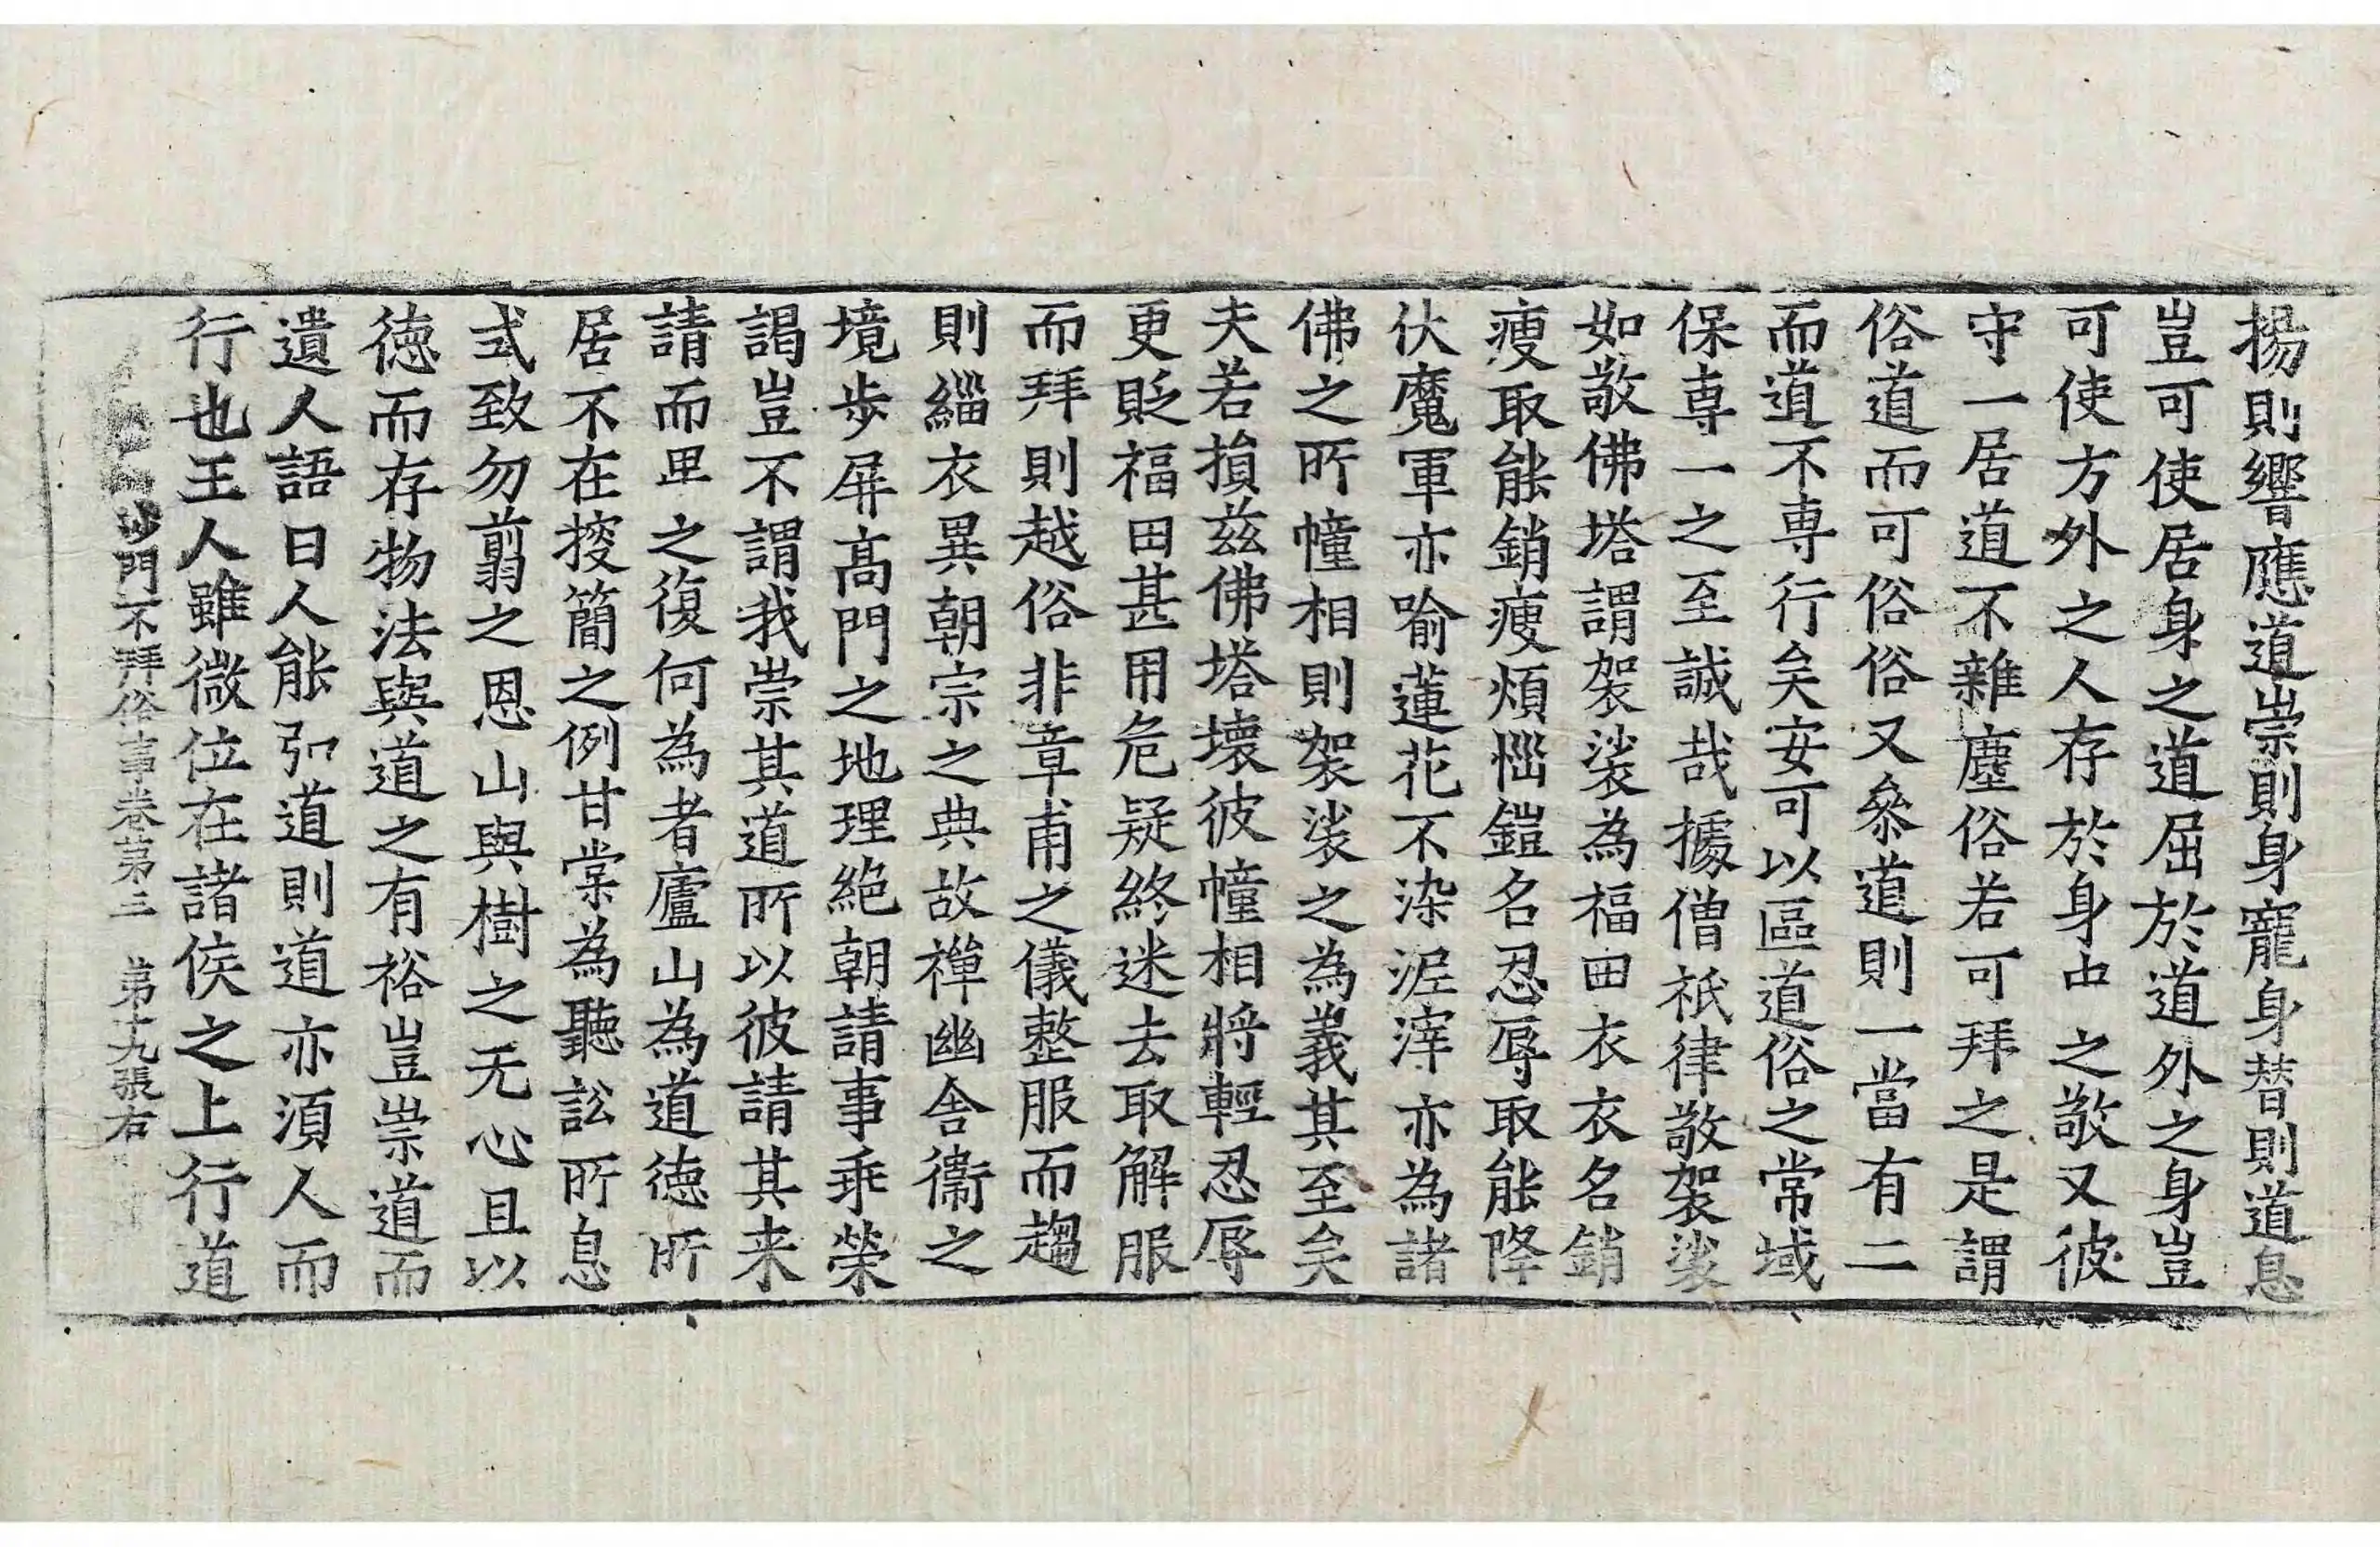 揚則響應道崇則身寵身替則道息
豈可使居身之道屈於道外之身豈
可使方外之人存於身中之敬又彼
守一居道不雜塵俗若可拜之是謂
俗道而可俗俗又叅道則一當有二
而道不専行矣安可以區道俗之常域
保専一之至誠哉據僧祇律敬袈裟
如敬佛塔謂袈裟為福田衣衣名銷
瘦取能銷瘦煩惱鎧名忍辱取能降
伏魔軍亦喻蓮花不染泥滓亦為諸
佛之所幢相則袈裟之為義其至矣
夫若損茲佛塔壞彼幢相將輕忍辱
更貶福田甚用危疑終迷去取解服
而拜則越俗非章甫之儀整服而趨
則緇衣異朝宗之典故禅幽舍衞之
境歩屏高門之地理絶朝請事乖榮
謁豈不謂我崇其道所以彼請其来
請而卑之復何為者廬山為道徳所
居不在搜簡之例甘棠為聽訟所息
式致勿翦之恩山與樹之无心且以
徳而存物法與道之有裕豈崇道而
遺人語曰人能弘道則道亦須人而
行也王人雖微位在諸侯之上行道
沙門不拜俗事卷第三　第十九張右